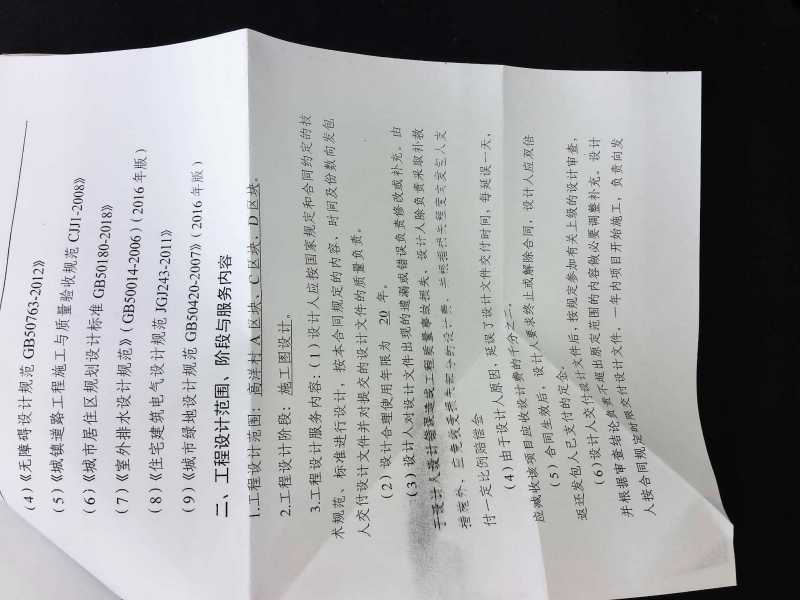 (4)《无障碍设计规范 GB50763-2012》
(5)《城镇道路工程施工与质量验收规范 CJJ1-2008》
(6)《城市居住区规划设计标准 GB50180-2018》
(7)《室外排水设计规范》(GB50014-2006)(2016年版)
(8)《住宅建筑电气设计规范 JGJ243-2011》
(9)《城市绿地设计规范 GB50420-2007》(2016年版)
二、工程设计范围、阶段与服务内容
1.工程设计范围：高洋村A区块、C区块、D区块。
2.工程设计阶段：施工图设计。
3.工程设计服务内容：(1)设计人应按国家规定和合同约定的技
术规范、标准进行设计，按本合同规定的内容、时间及份数向发包
人交付设计文件并对提交的设计文件的质量负责。
(2)设计合理使用年限为 20 年。
(3)设计人对设计文件出现的遗漏或错误负责修改或补充。由
于设计人设计错误造成工程质量事故损失，设计人除负责采取补救
措施外，应免收受损失部分的设计费，并根据损失程度向发包人支
付一定比例赔偿金
(4)由于设计人原因，延误了设计文件交付时间，每延误一天，
应减收该项目应收设计费的千分之二。
(5)合同生效后，设计人要求终止或解除合同，设计人应双倍
返还发包人已支付的定金。
(6)设计人交付设计文件后，按规定参加有关上级的设计审查，
并根据审查结论负责不超出原定范围的内容做必要调整补充。设计
人按合同规定时限交付设计文件，一年内项目开始施工，负责向发